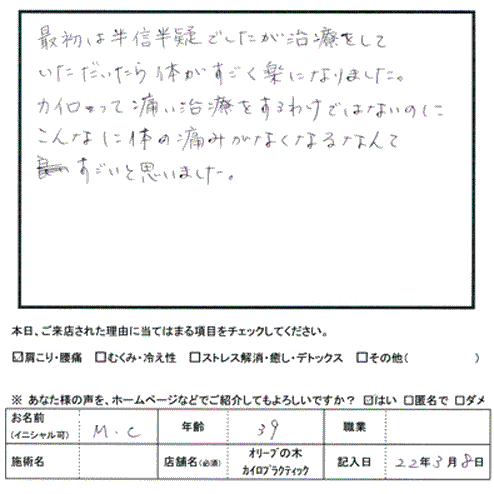 最初は半信半疑でしたが治療をして
いただいたら体がすごく楽になりました。
カイロって痛い治療をするわけではないのに
こんなに体の痛みがなくなるなんて
すごいと思いました。
本日、ご来店された理由に当てはまる項目をチェックしてください。
☑肩こり・腰痛 □むくみ・冷え性 □ストレス解消・癒し・デトックス □その他( )
※ あなた様の声を、ホームページなどでご紹介してもよろしいですか? ☑はい □匿名で □ダメ
お名前 (イニシャル可) M.C 年齢 39 職業
施術名 店舗名(必須) オリーブの木 カイロプラクティック 記入日 22年3月8日